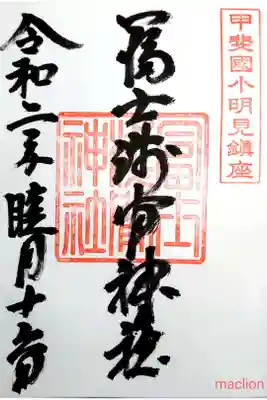 甲斐國小明見鎮座
冨士浅間神社
冨士
浅間
神社
令和二年睦月十一日
maclion